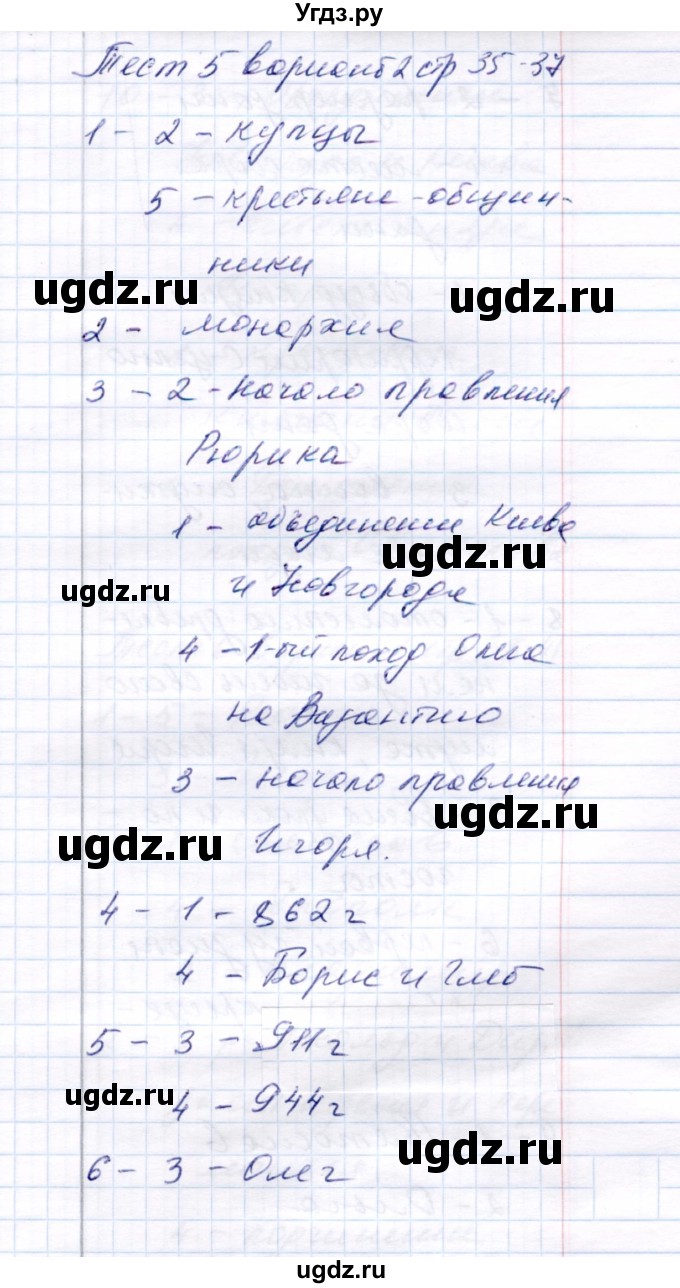 Угдз.ру
Тест 5 вариант 2 стр 35-37
1 - 2 - купцы
5 - крестьяне-общин-
ники
ugdz.ru ugdz.ru
2 - монархия
3 - 2 - начало правления
Рюрика
1 - объединение Киева
ugdz.ru
и Новгорода
ugdz.ru
4 - 1-ый поход Олега
на Византию
3 - начало правления
ugdz.ru
Игоря.
ugdz.ru
4 - 1 - 862 г
4 - Борис и Глеб
5 - 3 - 911 г
4 - 944 г
ugdz.ru
6 - 3 - Олег
ugdz.ru
ugdz.ru ugdz.ru